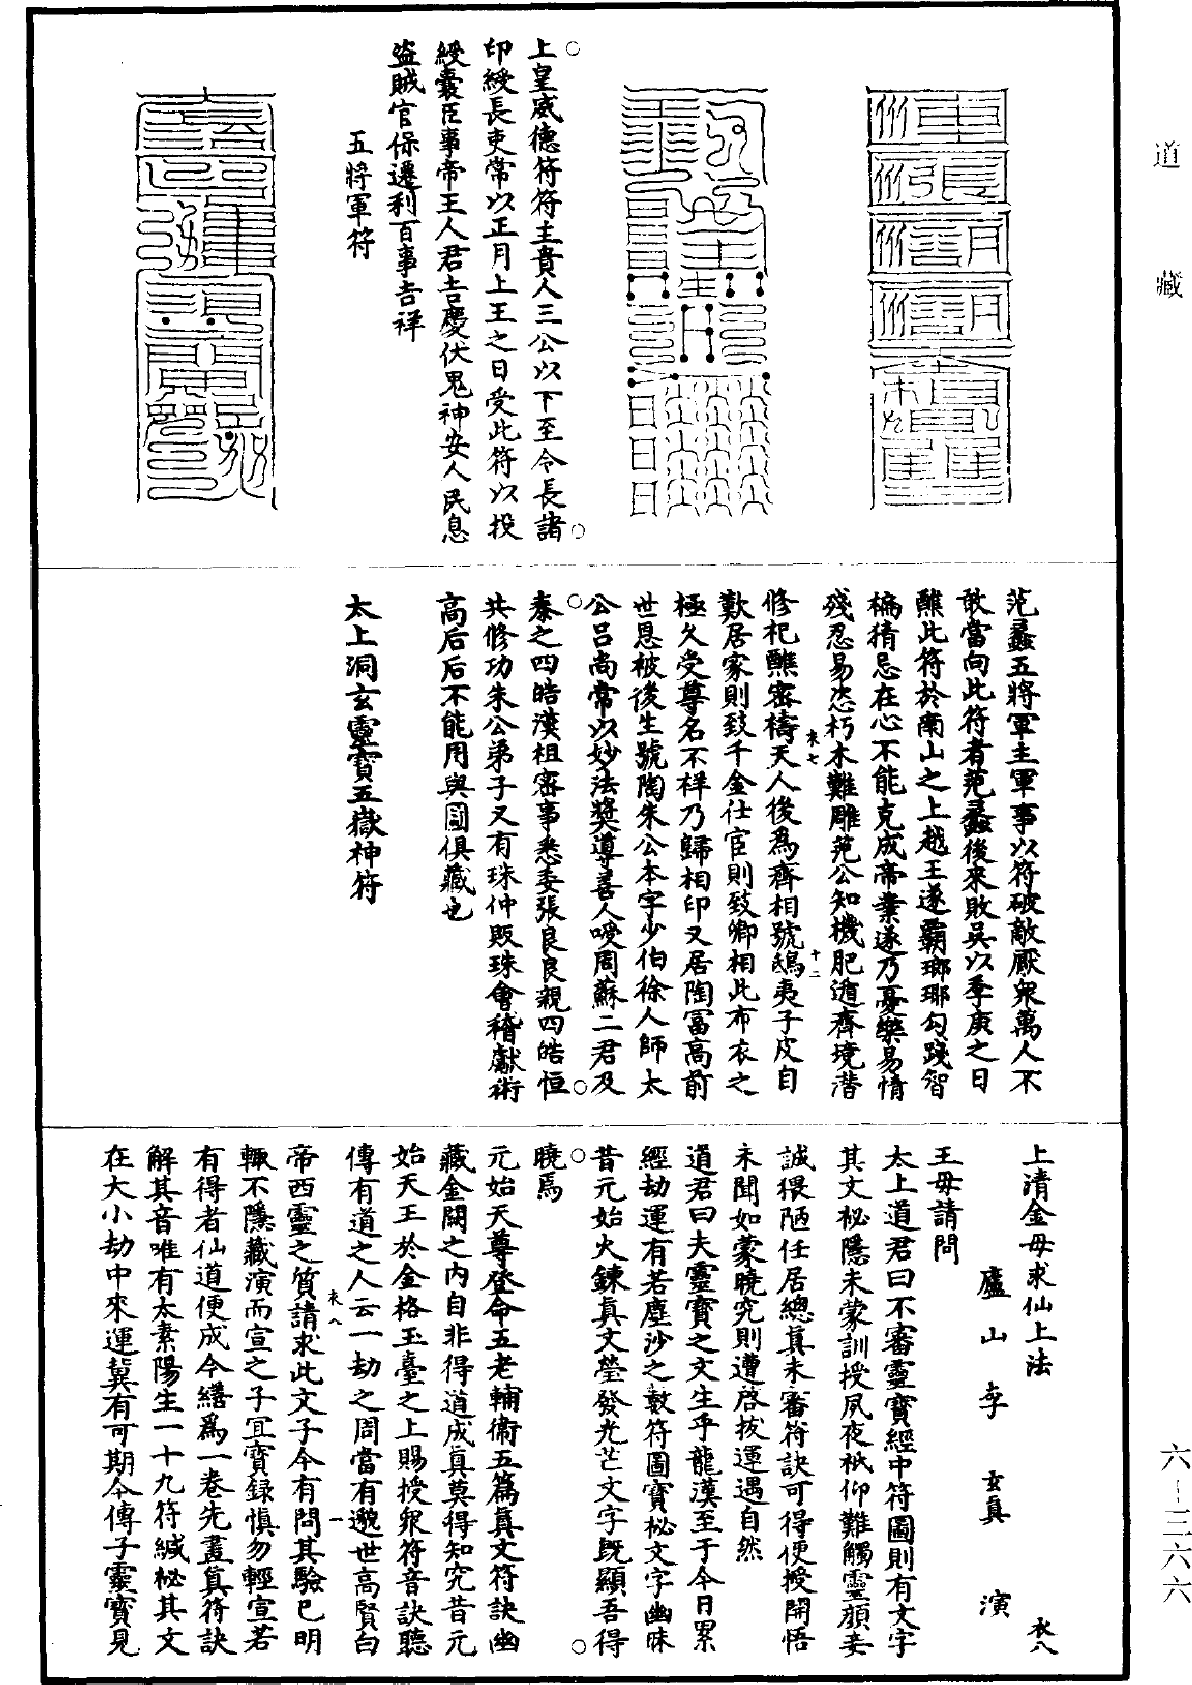 道藏
六-三六六
上皇威德符符主貴人三公以下至令長諸
印綬長吏常以正月上王之日受此符以投
綬囊臣事帝王人君吉慶伏鬼神安人民息
盜賊官保遷利百事吉祥
五將軍符
范蠡五將軍主軍事以符破敵厭衆萬人不
敢當向此符者范蠡後來敗吳以季庚之日
醮此符於南山之上越王遂霸瑯琊勾踐智
褊猜忌在心不能克成帝業遂乃憂樂易情
殘忍易恣朽木難雕范公知機肥遁齊境潛
衣七
十二
修祀醮密禱天人後爲齊相號鴟夷子皮自
歎居家則致千金仕宦則致卿相此布衣之
極久受尊名不祥乃歸相印又居陶冨高前
世恩被後生號陶朱公本字少伯徐人師太
公吕尚常以妙法獎導善人嗳周蘇二君及
秦之四皓漢祖密事悉委張良良親四皓恒
共修功朱公弟子又有珠仲販珠會稽獻術
高后后不能用與國俱藏也
太上洞玄靈寶五嶽神符
上清金母求仙上法
衣八
廬山李玄真演
王母請問
太上道君曰不審靈寶經中符圖則有文字
其文祕隱未蒙訓授夙夜祇仰難觸靈顔妾
誠猥陋任居總真未審符訣可得便授開悟
未聞如蒙曉究則遭啓拔運遇自然
道君曰夫靈寶之文生乎龍漢至于今日累
經劫運有若塵沙之數符圖寶祕文字幽昧
昔元始火鍊真文瑩發光芒文字旣顯吾得
曉焉
元始天尊登命五老輔衞五篇真文符訣幽
藏金闕之内自非得道成真莫得知究昔元
始天王於金格玉臺之上賜授衆符音訣聽
傳有道之人云一劫之周當有邈世高賢白
衣八
一
帝西靈之質請求此文子今有問其驗已明
輒不隱藏演而宣之子宜寳録慎勿輕宣若
有得者仙道便成今繕爲一卷先畫真符訣
解其音唯有太素陽生一十九符緘祕其文
在大小劫中來運冀有可期今傳子靈寶見